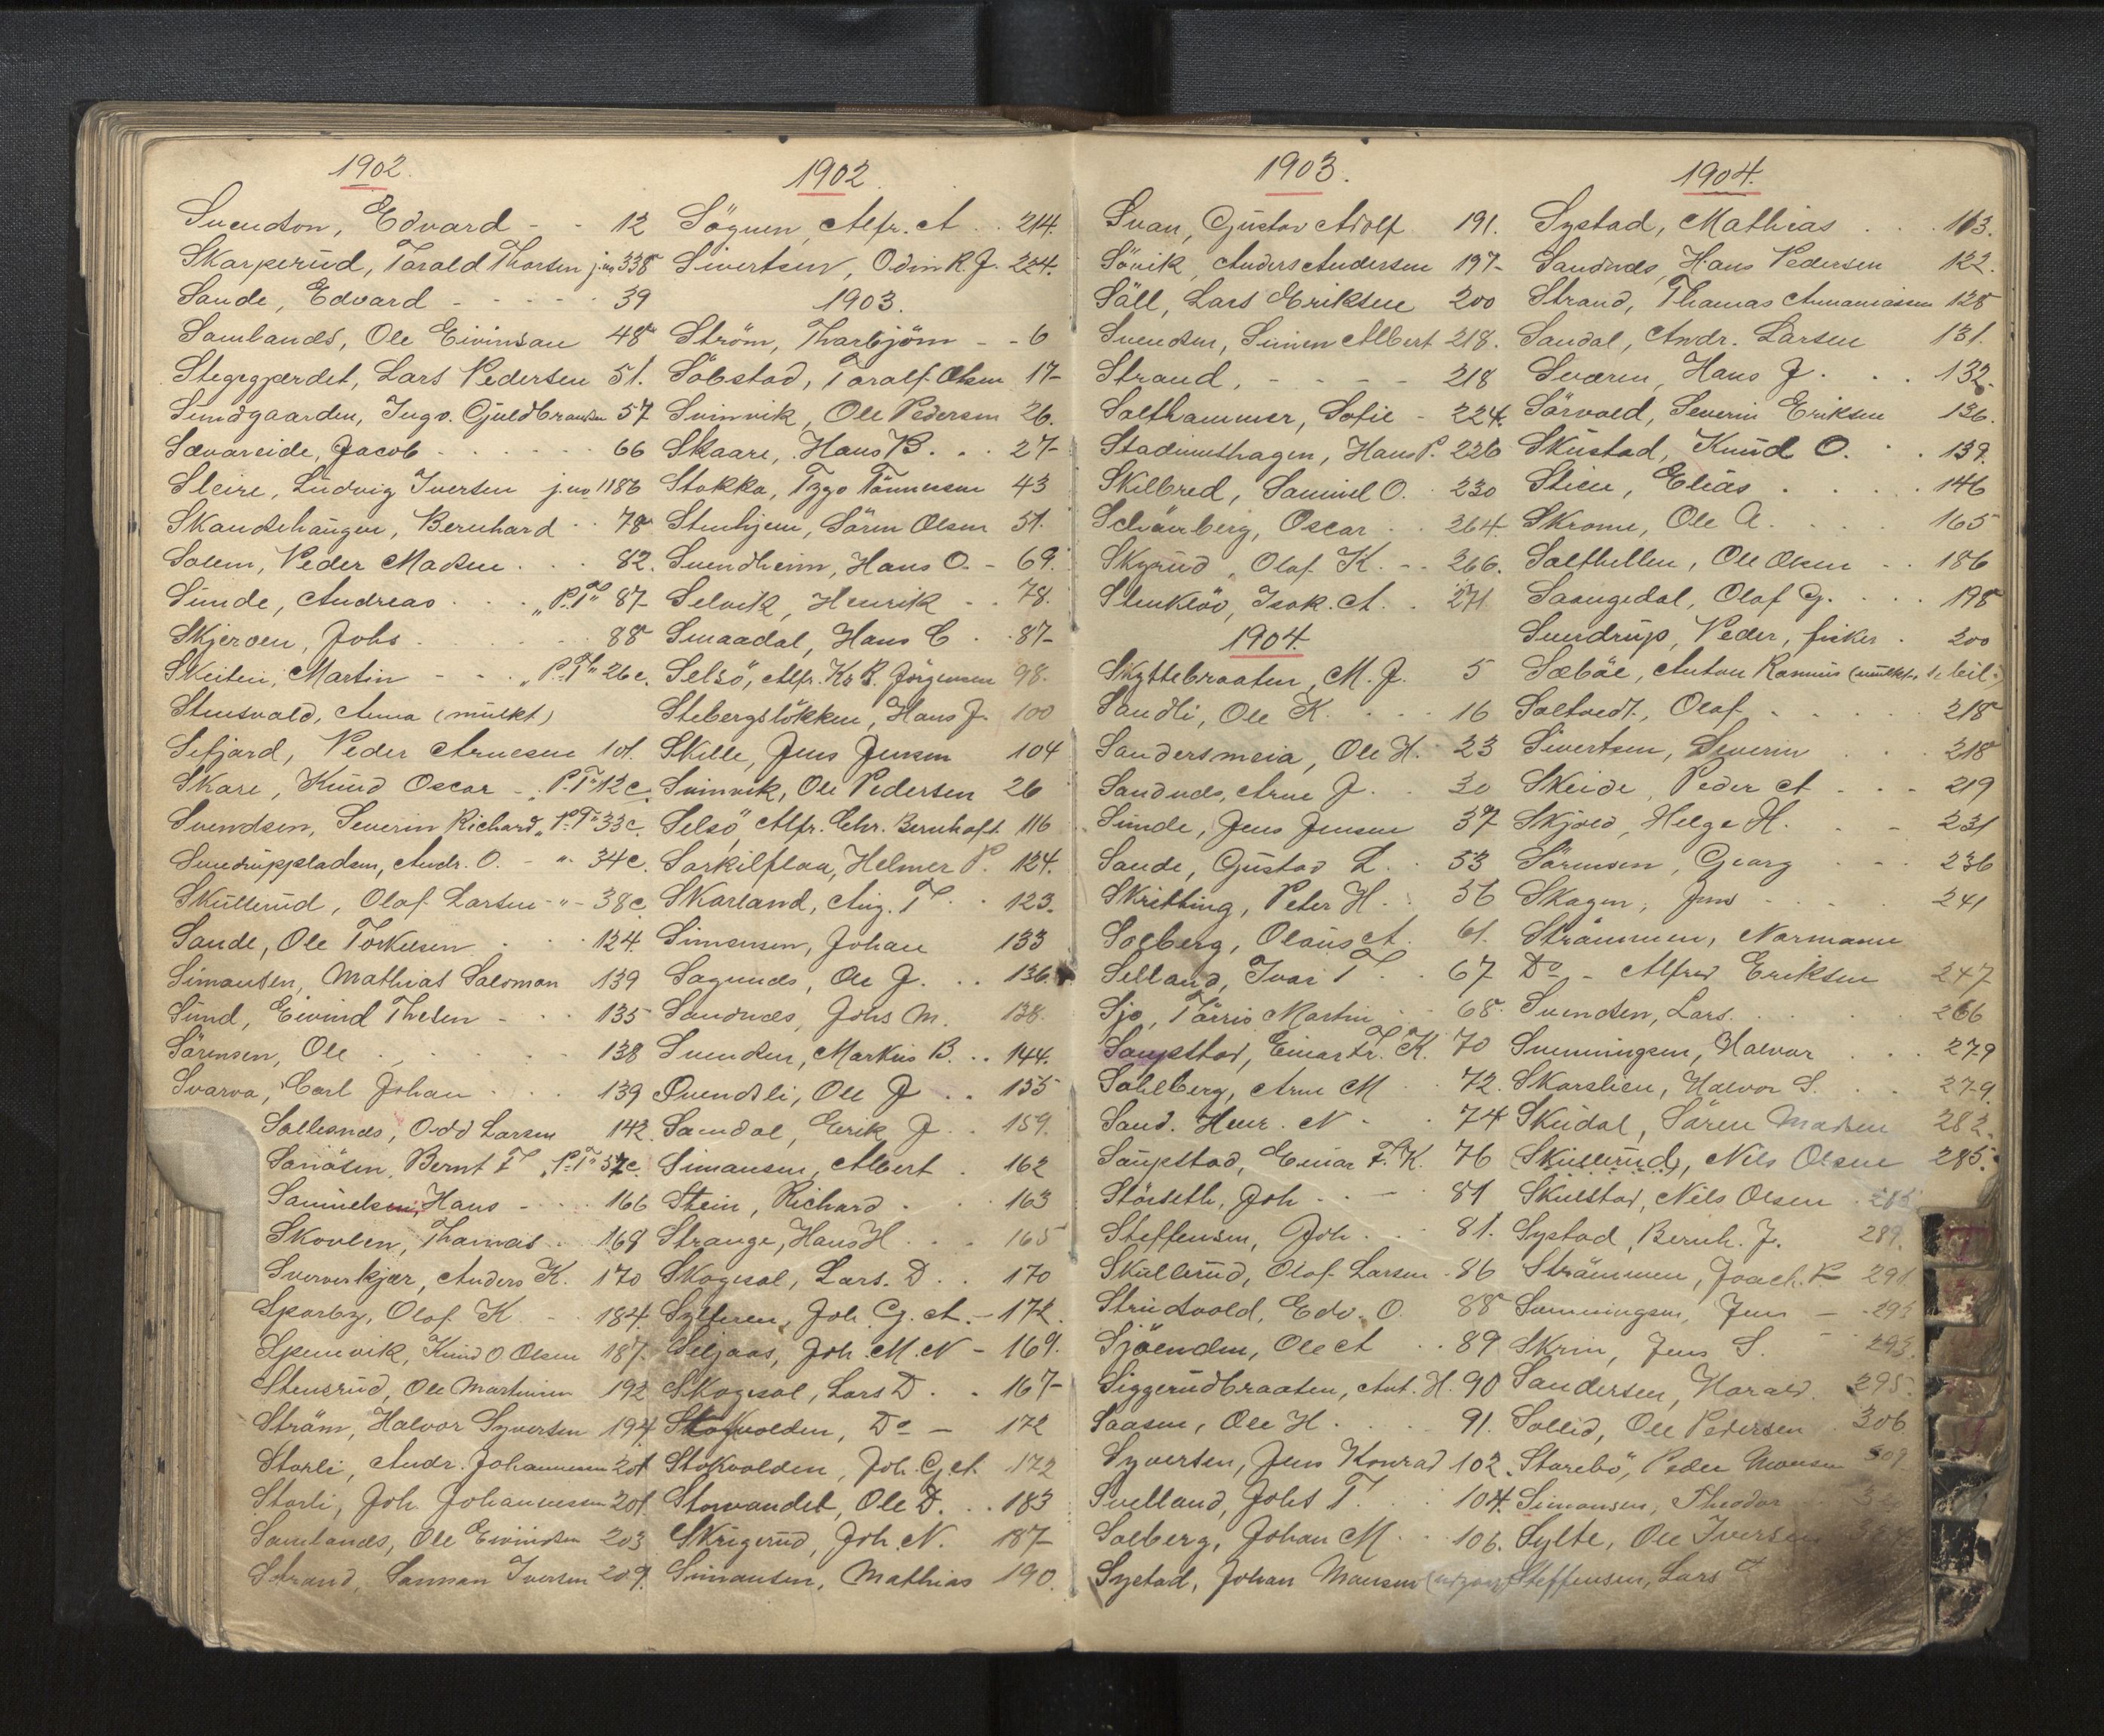 1902.
Svendson, Edvard - - 12
Skarperud, Torald Thorsen j.no 338
Sande, Edvard - - - - 39
Samlands, Ole Eivinsøn 48
Steggjerdet, Lars Pedersen 51.
Sundgaarden, Ingv. Guldbrandsen 57
Sævareide, Jacob 66
Sleire, Ludvig Iversen j.no 1186
Skandsehaugen, Bernhard 78
Solem, Peder Madsen 82.
Sunde, Andreas "P.T" 87
Skjerven, Johs 88
Skeiten, Martin - - "P.T" 26c.
Stensvold, Anna (mulkt)
Sefjord, Peder Arnesen 101.
Skare, Knud Oscar - "P.T" 12c.
Svendsen, Severin Richard "P.T" 33c.
Sundruppladsen, Andr. O. - " - 34c.
Skullerud, Olaf Larsen - " - 38c
Sande, Ole Torkelsen 124.
Simonsen, Mathias Salomon 139
Sund, Eivind Thesen - 135
Sörensen, Ole 138
Svarva, Carl Johan 139
Sollesnes, Odd Larsen 142.
Sanösen, Bernt F "P.T" 37c.
Samuelsen, Hans - 166
Skovlen, Thomas 168
Sververkjær, Anders K. 170
Sparby, Olaf K - 184.
Spennvik, Knud O Olsen 187.
Stensrud, Ole Martinsen 192
Ström, Halvor Syversen 194
Storli, Andr. Johannessen 201
Storli, Joh Johannessen 201.
Samlands, Ole Eivindsen 203
Strand, Samson Iversen 209.
1902.
Sögnen, Alfr. A. 214.
Sivertsen, Odin K. J. 224.
1903.
Ström, Thorbjörn - - 6
Söbstad, Toralf Olsen 17-
Svinvik, Ole Pedersen 26.
Skaare, Hans B. 27-
Stokka, Tönnesen 43
Stenhjem, Sören Olsen 51.
Svendheim, Hans O. - 69.
Selvik, Henrik - 78.
Smaadal, Hans C. 87-
Selsö, Alfr. Kr B. Jörgensen 98.
Stebergslökken, Hans J. 100
Skille, Jens Jensen 104
Svinvik, Ole Pedersen 26
Selsö, Alfr. Chr. Bernhoft 116
Sarkilflaa, Helmer P. 124.
Skarland, Aug. T. 123.
Simensen, Johan 133
Sagnnes, Ole J. 136.
Sandnes, Johs M. 138.
Svendsen, Markus B. 144.
Svendsli, Ole J. 155
Sandal, Erik J. 159.
Simonsen, Albert 162
Stein, Richard 163
Strange, Hans H 165
Skogesal, Lars. D. 170
Syltnen, Joh. G. A. - 172.
Seljaas, Joh. M. N - 169.
Skogesal, Lars D. 167-
Stokvolden, Do - 172
Stokvolden, Joh. G. A. 172
Storvandet, Ole D. 183
Skrigerud, Joh. N. 187-
Simonsen, Mathias 190.
1903.
Svan, Gustav Adolf 191.
Sövik, Anders Andersen 197-
Säll, Lars Eriksen 200
Svendsen, Simen Albert 218.
Strand, - - - - 218
Salthammer, Sofie - 224.
Stadiumshagen, Hans P. 226
Skilbred, Samuel O. 230
Schönberg, Oscar 264.
Skyrud, Olaf K. - - 266.
Stenklöv, Isak. A. 271.
1904.
Skyttebraaten, M. J. 5
Sandli, Ole K. 16
Sandersmeia, Ole H. 23
Sandnes, Arne J. 30
Sunde, Jens Jensen 37
Sande, Gustav L. 53
Skretting, Peter H. 56
Solberg, Olaus A. 61.
Selland, Ivar T. 67
Sjo, Tärris Martin 68.
Saupstad, Einar Fr. K. 70
Sahlberg, Arne M 72.
Sand. Henr. N 74
Saupstad, Einar F. K. 76
Störseth, Joh - - 81
Steffensen, Joh. 81.
Skullerud, Olaf Larsen - 86
Strudsvold, Edv. O. 88
Sjöenden, Ole A 89
Siggerudbraaten, Ant. H. 90
Saasen, Ole H. 91.
Syversen, Jens Konrad 102.
Svelland, Johs T. 104.
Solberg, Johan M. 106.
Systad, Johan Monsen
1904.
Systad, Mathias 113.
Sandnes, Hans Pedersen 122.
Strand, Thomas Annaniassen 128
Sandal, Andr. Larsen 131.
Sværen, Hans J. 132.
Sörvold, Severin Eriksen 136.
Skustad, Knud O. 139.
Stien, Elias 146
Skrome, Ole A. 165
Salthellen, Ole Olsen 186
Saangedal, Olaf G. 198
Sundrup, Peder, fisker 200
Sæböe, Anton Rasmus (mulkt, 1, beil.)
Saltvedt, Olaf 218
Sivertsen, Severin 218
Skeide, Peder A - - - 219
Skjold, Helge H. 231
Sörensen, Georg 236
Skagen, Jens 241
Strömmen, Normann
Do - Alfred Eriksen 247
Svendsen, Lars 266
Svenningsen, Halvor 279
Skarslien, Halvor S. 279.
Skudal, Sören Madsen 282.
(Skullerud), Nils Olsen 285.
Skulstad, Nils Olsen 285
Systad, Bernh. J. 289.
Strömmen, Joach. P 291.
Svenningsen, Jens - 293
Skrin, Jens S. - 293.
Sandersen, Harald 295.
Sollid, Ole Pedersen 306
Starebö, Peder Monsen 309
Simonsen, Theodor
Sylte, Ole Iversen
Steffensen, Lars A